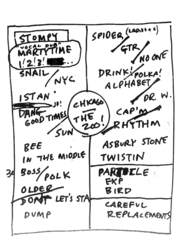 STOMPY
MARTYTIME
1!2!3!
SNAIL
NYC
ISTAN
DANG
GOOD TIMES
SUN
BEE
IN THE MIDDLE
BOSS/POLK
OLDER
DONT LET'S STA
DUMP
CHICAGO
THE
ZOO!
SPIDER
GTR
NO ONE
DRINK!
POLKA!
ALPHABET
DR W.
CAP'M
RHYTHM
ASBURY STONE
TWISTIN
PARTICLE
EXP
BIRD
CAREFUL
REPLACEMENTS